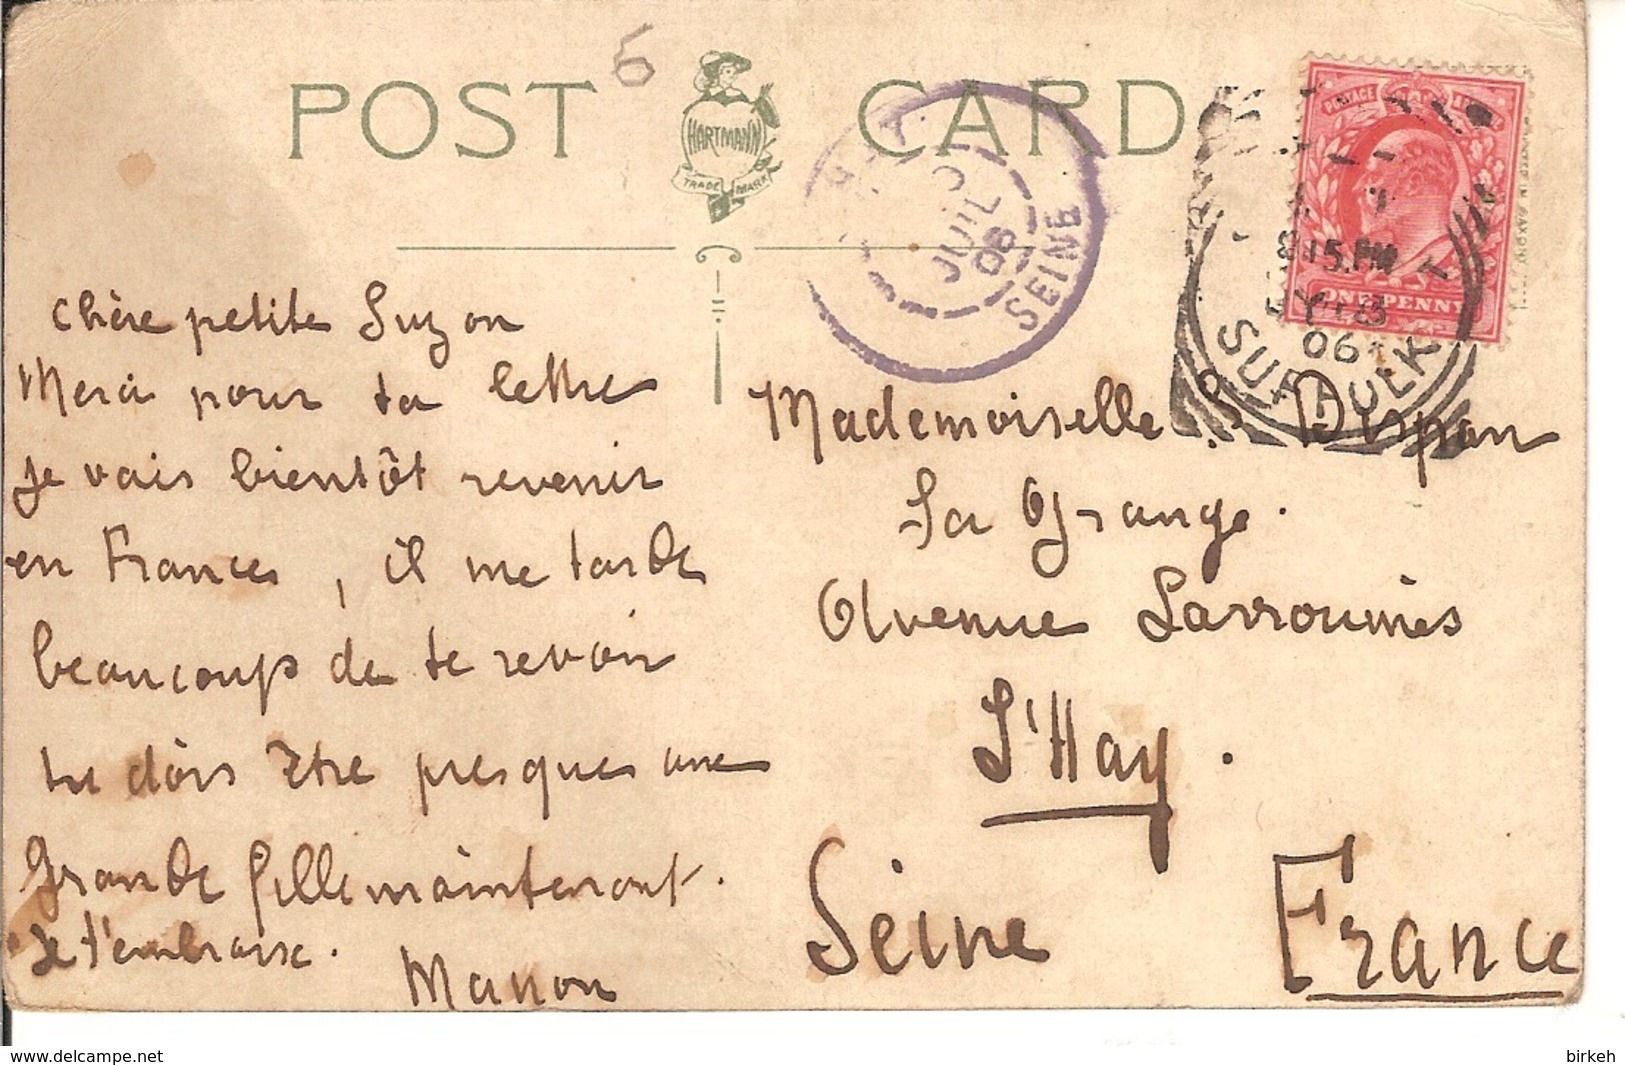 POST CARD
6
HARTMANN
TRADE MARK
JUIL
06
SEINE
POSTAGE
ONE PENNY
8.15.PM
06
SUFFOLK
chère petite Suzon
Merci pour ta lettre
je vais bientôt revenir
en France, il me tarde
beaucoup de te revoir
tu dois être presque une
grande fille maintenant.
Je t'embrasse.
Manon
Mademoiselle S.
La Grange.
Avenue Larroumès
L'Hay.
Seine
France
www.delcampe.net
birkeh